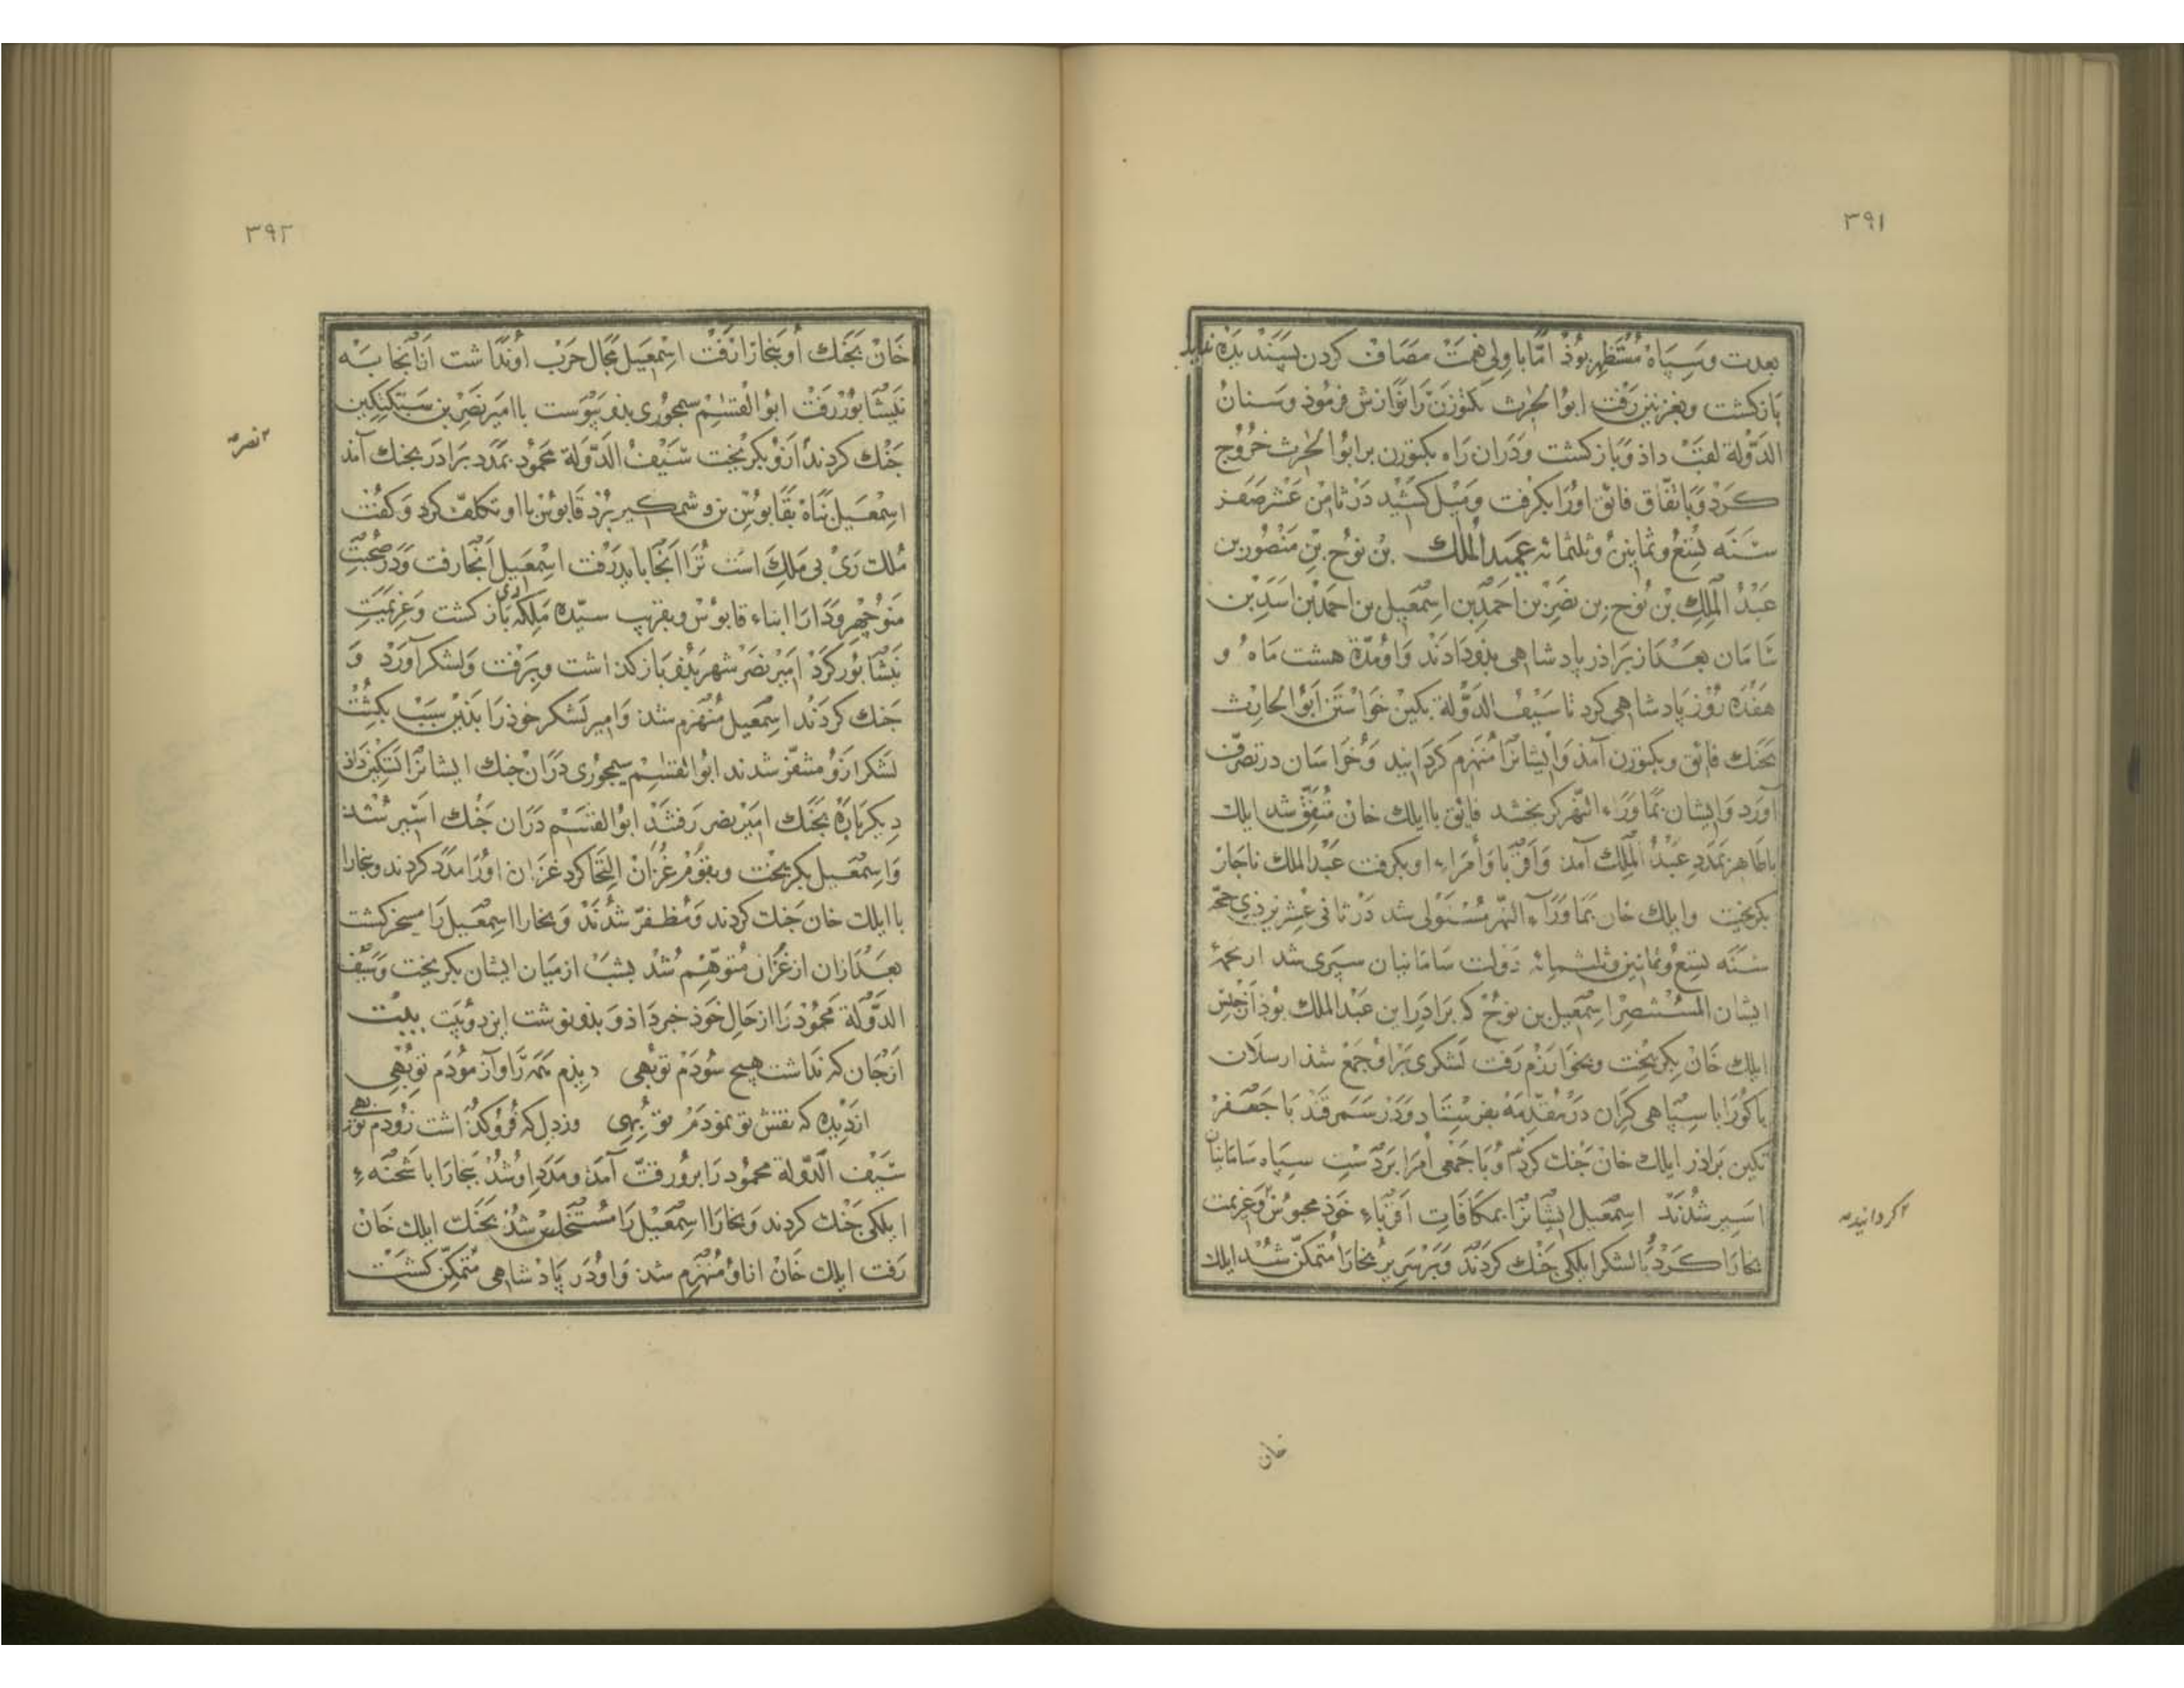 ۳۹۱
بعدت و سپاه مستظهر بوذ امّا با ولی نعمت مصاف کردن پسندیده نفاید
بازکشت و بغزنین رفت ابوالحرث بکتوزن را نوازش فرموذ و سنان
الدّولة لقب داذ و بازکشت و دران راه بکتوزن بر ابوالحرث خروج
کرد و باتفّاق فائق اورا بکرفت و میل کشید در ثامن عشر صفر
سنه تسع و ثمانین و ثلثمائه عمید الملک بن نوح بن منصور بن
عبد الملک بن نوح بن نصر بن احمد بن اسمعیل بن احمد بن اسد بن
سامان بعد از براذر پادشاهی بدو دادند و او مدّة هشت ماه و
هفده روز پادشاهی کرد تا سیف الدّولة بکین خواستن ابوالحارث
بجنک فائق و بکتوزن آمذ و ایشانرا منهزم کردانید و خراسان در تصرّف
آورد و ایشان بماوراء النّهر کریختند فائق با ایلک خان متفق شد ایلک
باظاهر بمدد عبد الملک آمذ و اقربا و امراء او بکرفت عبد الملک ناچار
بکریخت و ایلک خان بماوراء النّهر مستولی شد در ثانی عشر ذی حجّه
سنه تسع و ثمانین و ثلثمائه دولت سامانیان سپری شد از تخمهٔ
ایشان المستنصر اسمعیل بن نوح که براذر این عبد الملک بوذ از حبس
ایلک خان بکریخت و بخوارزم رفت لشکری برا و جمع شذ ارسلان
یا کورا با سپاهی کران در مقدّمه بفرستاد و در سمرقند با جعفر
تکین براذر ایلک خان جنک کردند و با جمعی امرا بر دست سپاه سامانیان
اسیر شدند اسمعیل ایشانرا بمکافات اقرباء خوذ محبوس و عزیمت
بخارا کرد و با لشکر ایلکی جنک کردند و بر سریر بخارا متمکّن شد ایلک
۲ کردانید صح
خان
۳۹۲
خان بجنک او ببخارا رفت اسمعیل مجال حرب او نداشت از آنجا به
نیشابور رفت ابوالقسم سیمجوری بذو پیوست با امیر نصر بن سبکتکین
جنک کردند ازو بکریخت سیف الدّولة محمود بمدد براذر بجنک آمذ
اسمعیل پناه بقابوس بن وشمکیر برد قابوس با او تکلّف کرد و کفت
ملک ری بی ملک است ترا آنجا باید رفت اسمعیل آنجا رفت و در صحبت
منوچهر و دارا ابناء قابوس و بفریب سیّده ملکه ری بازکشت و عزیمت
نیشابور کرد امیر نصر شهر بذو بازکذاشت و برفت و لشکر آورد و
جنک کردند اسمعیل منهزم شد و امیر لشکر خوذ را بذین سبب بکشت
لشکر ازو متنفّر شدند ابوالقسم سیمجوری دران جنک ایشانرا تسکین داذ
دیکرباره بجنک امیر نصر رفتند ابوالقسم دران جنک اسیر شد
و اسمعیل بکریخت و بقوم غزان التجا کرد غزان اورا مدد کردند و بخارا
با ایلک خان جنک کردند و مظفّر شدند و بخارا اسمعیل را مسخر کشت
بعد ازان از غزان متوهّم شد بشب از میان ایشان بکریخت و سیف
الدّولة محمود را از حال خوذ خبر داذ و بذو نوشت این دو بیت بیت
از جان که نداشت هیچ سودم تو بهی دیذم همه را و آزمودم تو بهی
از دیده که نقش تو نمودم تو بهی وز دل که فروکذاشت زودم تو بهی
سیف الدّولة محمود را برو رقّت آمذ و مدد او شذ ببخارا با شحنهء
ایلکی جنک کردند و بخارا اسمعیل را مستخلص شد بجنک ایلک خان
رفت ایلک خان از او منهزم شد و او در پادشاهی متمکّن کشت
۲ نصر صح